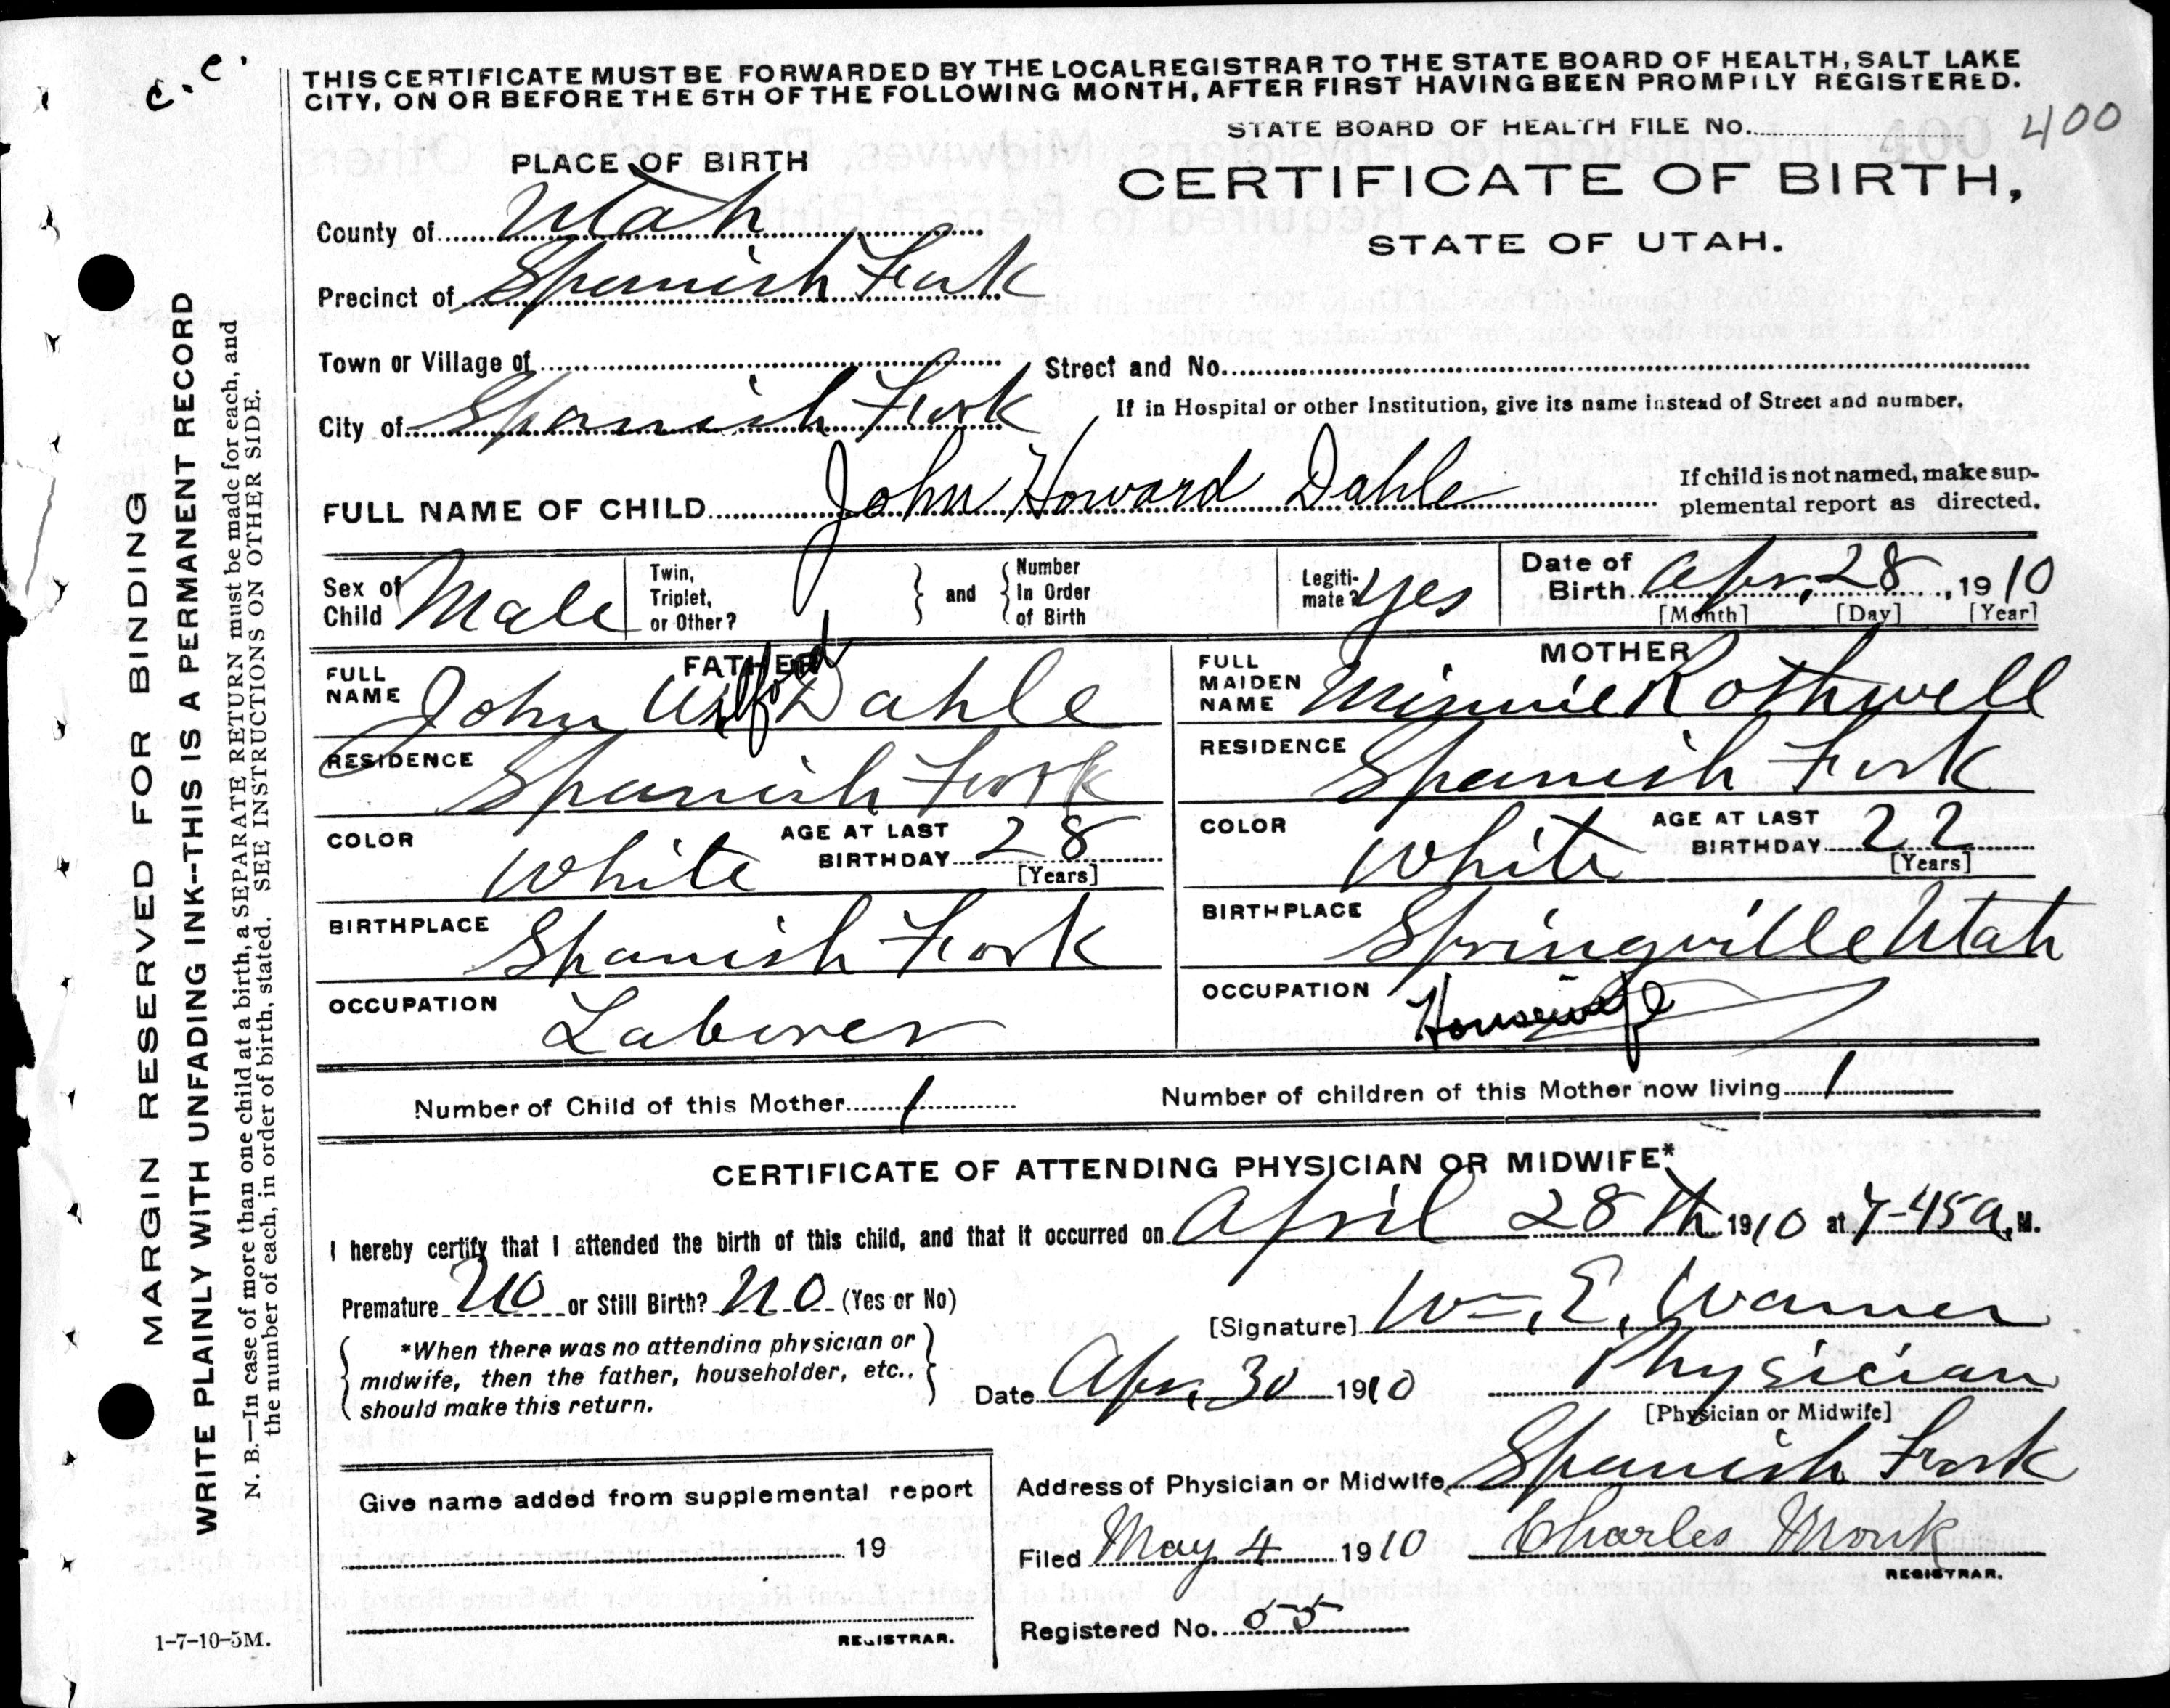 c. c.
THIS CERTIFICATE MUST BE FORWARDED BY THE LOCAL REGISTRAR TO THE STATE BOARD OF HEALTH, SALT LAKE
CITY, ON OR BEFORE THE 5TH OF THE FOLLOWING MONTH, AFTER FIRST HAVING BEEN PROMPILY REGISTERED.
STATE BOARD OF HEALTH FILE No. 400
PLACE OF BIRTH
CERTIFICATE OF BIRTH,
STATE OF UTAH.
County of Utah
Precinct of Spanish Fork
Town or Village of
Street and No.
City of Spanish Fork
If in Hospital or other Institution, give its name instead of Street and number.
FULL NAME OF CHILD John Howard Dahle
If child is not named, make sup-
plemental report as directed.
Sex of Child Male
Twin, Triplet, or Other?
and
Number In Order of Birth
Legiti-mate? Yes
Date of Birth Apr, 28, 1910
[Month] [Day] [Year]
FATHER
FULL NAME John Wilford Dahle
RESIDENCE Spanish Fork
COLOR White
AGE AT LAST BIRTHDAY 28
[Years]
BIRTHPLACE Spanish Fork
OCCUPATION Laborer
MOTHER
FULL MAIDEN NAME Minnie Rothwell
RESIDENCE Spanish Fork
COLOR White
AGE AT LAST BIRTHDAY 22
[Years]
BIRTHPLACE Springville Utah
OCCUPATION Housewife
Number of Child of this Mother 1
Number of children of this Mother now living 1
CERTIFICATE OF ATTENDING PHYSICIAN OR MIDWIFE*
I hereby certify that I attended the birth of this child, and that it occurred on April 28th 1910 at 7-45 a, M.
Premature no or Still Birth? no (Yes or No)
*When there was no attending physician or
midwife, then the father, householder, etc.,
should make this return.
[Signature] Wm. E. Warner
Date Apr, 30 1910
Physician
[Physician or Midwife]
Give name added from supplemental report
19
REGISTRAR.
Address of Physician or Midwife Spanish Fork
Filed May 4 1910 Charles Monk
REGISTRAR.
Registered No. 55
1-7-10-5M.
MARGIN RESERVED FOR BINDING
WRITE PLAINLY WITH UNFADING INK--THIS IS A PERMANENT RECORD
N. B.—In case of more than one child at a birth, a SEPARATE RETURN must be made for each, and
the number of each, in order of birth, stated. SEE INSTRUCTIONS ON OTHER SIDE.